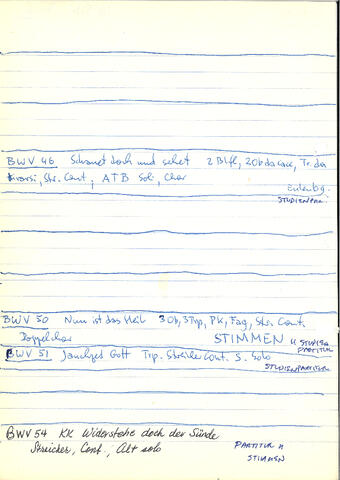 BWV 46 Schauet doch und sehet 2 Blfl, 2 Ob da cacc, Tr. da
tirarsi, Str. Cont, ATB Soli, Chor
Eulenbg.
STUDIENPAR.
BWV 50 Nun ist das Heil 3 Ob, 3 Trp, PK, Fag, Str. Cont.
Doppelchor STIMMEN u STUDIEN
PARTITUR
BWV 51 Jauchzet Gott Trp. Streiche Cont. S. Solo
STUDIENPARTITUR
BWV 54 KK Widerstehe doch der Sünde
Streicher, Cont., Alt solo PARTITUR u
STIMMEN